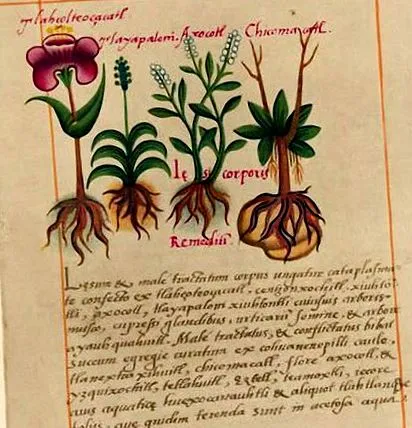 Tlahcolteoçacatl.
Tlayapaloni. Axocotl. Chicomacatl.
Lęsi corporis
Remediũ.
Lęsum & male tractatum corpus ungatur cataplasma-
te confecto ex tlahcolteoçacatl, centzonxochitl, xiuhto-
tli, axocotl, tlayapaloni xiuhtontli cuiusuis arboris
musco, cupressi glandibus, urticarũ semine, & arbore
ayauhquahuitl. Male tractatus, & conflictatus bibat
succum egregie curatum ex cohuanenepilli caule,
tlanextia xihuitl, chicomacatl, flore axocotl, &
yzquixochitl, tetlahuitl, eztetl, teamoxtli, iecore
auis aquaticę huexocanauhtli & aliquot tlahtlanqua
folijs, que quidem terenda sunt in acetosa aqua